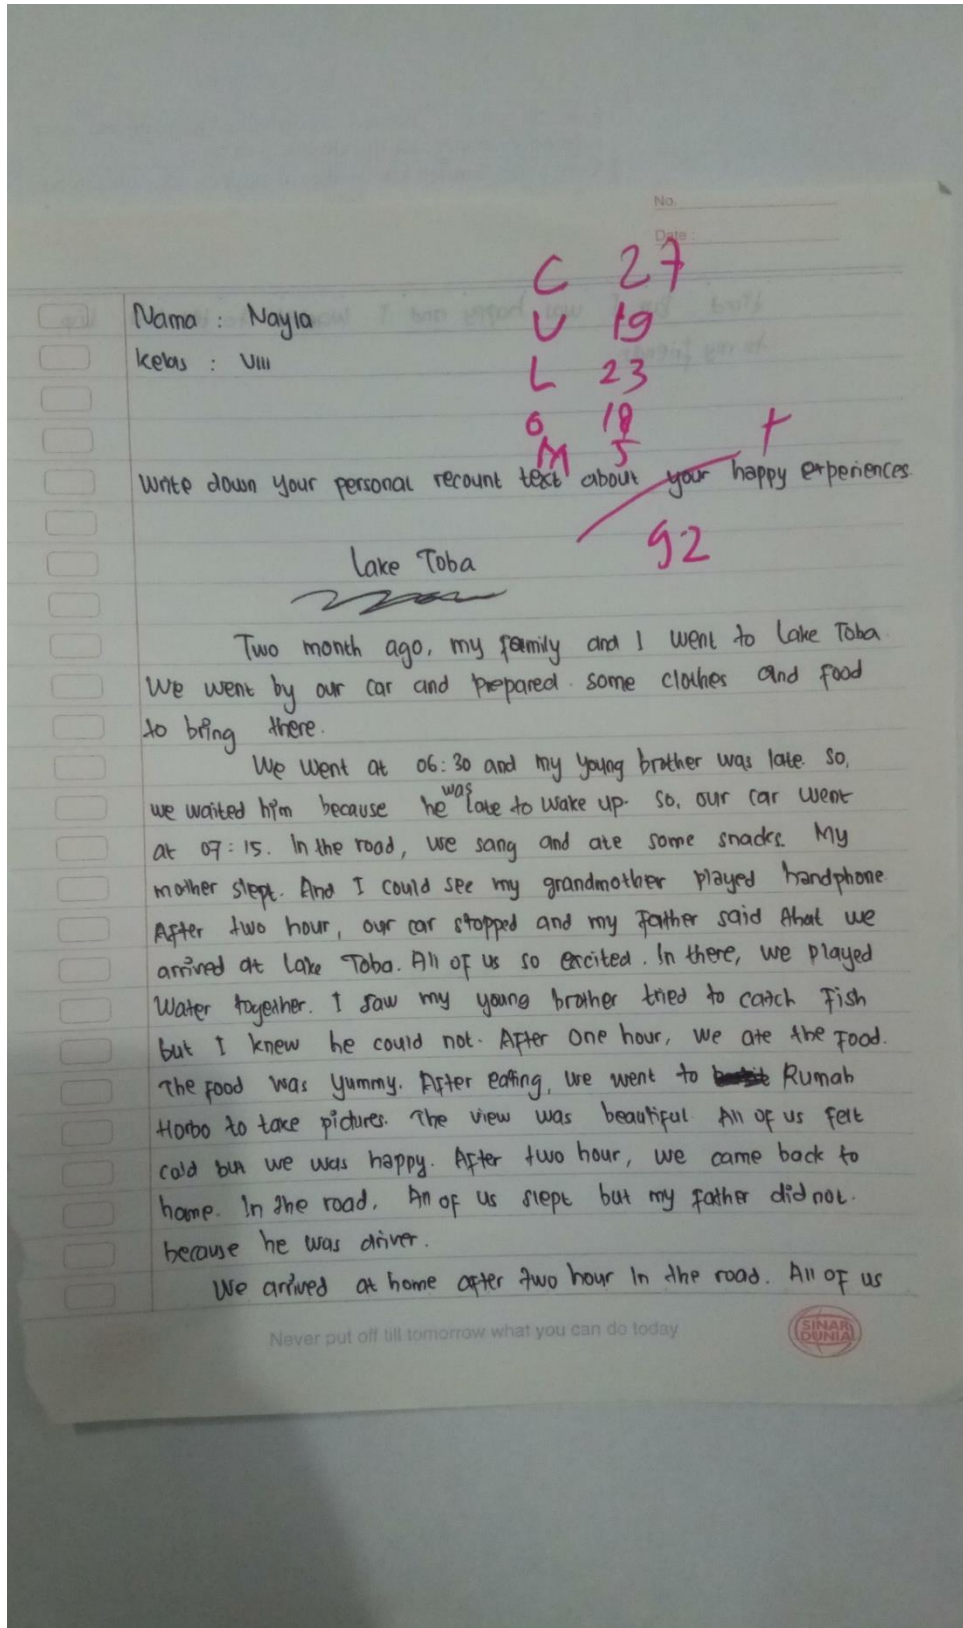 No.
Date :
C 27
Nama : Nayla
V 19
Kelas : VIII
L 23
O 18
M 5
+
Write down your personal recount text about your happy experiences.
92
Lake Toba
Two month ago, my family and I went to Lake Toba.
We went by our car and prepared some clothes and food
to bring there.
We went at 06:30 and my young brother was late. So,
we waited him because he was late to wake up. So, our car went
at 07:15. In the road, we sang and ate some snacks. My
mother slept. And I could see my grandmother played handphone.
After two hour, our car stopped and my father said that we
arrived at Lake Toba. All of us so excited. In there, we played
Water together. I saw my young brother tried to catch fish
but I knew he could not. After one hour, we ate the food.
The food was yummy. After eating, we went to Rumah
Horbo to take pictures. The view was beautiful. All of us felt
cold but we was happy. After two hour, we came back to
home. In the road, All of us slept but my father did not.
because he was driver.
We arrived at home after two hour in the road. All of us
Never put off till tomorrow what you can do today
SINAR
DUNIA